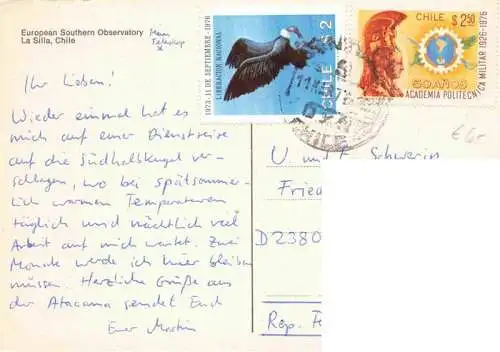 European Southern Observatory
La Silla, Chile
Mein
Teleskop
Ihr Lieben!
Wieder einmal hat es
mich auf einer Dienstreise
auf die Südhalbkugel ver-
schlagen, wo bei spätsommer-
lich warmen Temperaturen
täglich und nächtlich viel
Arbeit auf mich wartet. Zwei
Monate werde ich hier bleiben
müssen. Herzliche Grüße aus
der Atacama sendet Euch
Euer Martin
1973-11 DE SEPTIEMBRE-1976
LIBERACION NACIONAL
CHILE $ 2
CHILE
$ 2,50
50 AÑOS
ACADEMIA POLITECNICA MILITAR 1926-1976
CHILE
U. und
Schwerin
Fried
D 2380
Rep. F